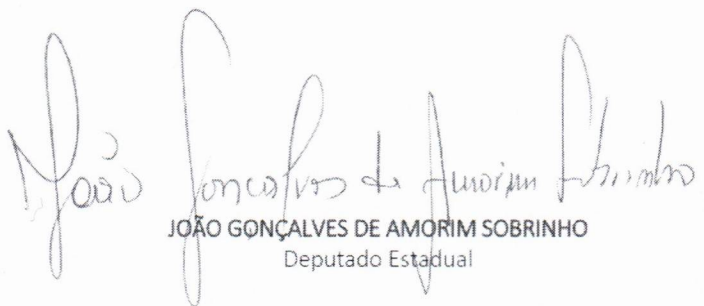 João Gonçalves de Amorim Sobrinho
JOÃO GONÇALVES DE AMORIM SOBRINHO
Deputado Estadual